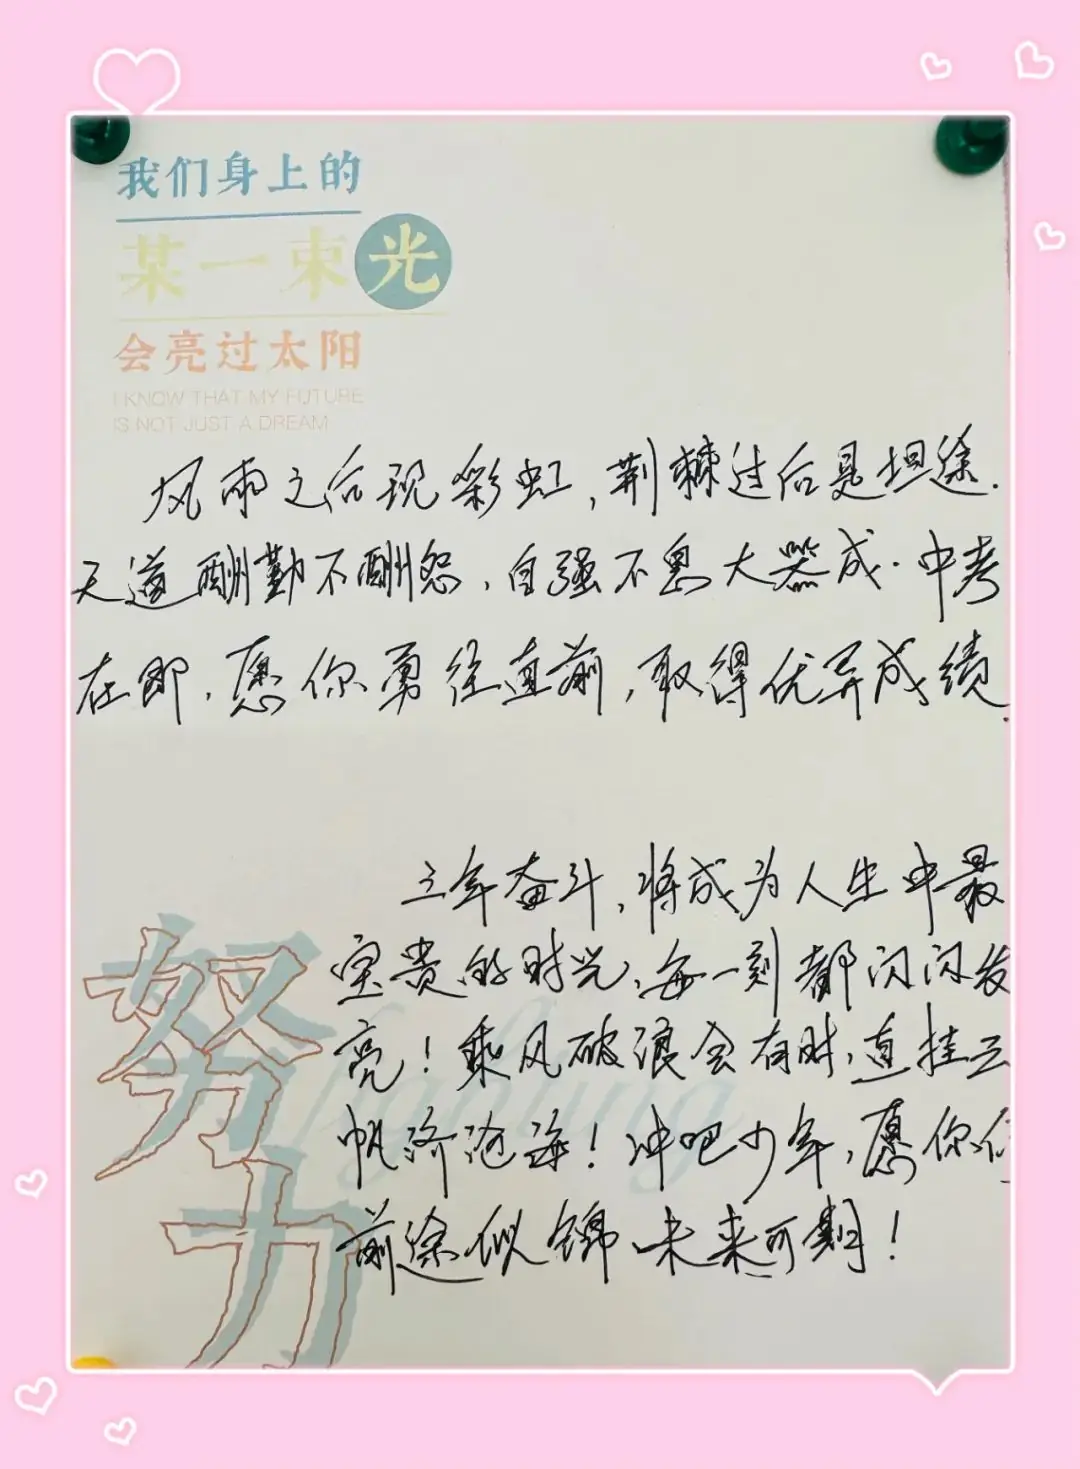 我们身上的
某一束光
会亮过太阳
I KNOW THAT MY FUTURE
IS NOT JUST A DREAM
风雨之后现彩虹,荆棘过后是坦途.
天道酬勤不酬怨,自强不息大器成.中考
在即,愿你勇往直前,取得优异成绩.
三年奋斗,将成为人生中最
宝贵的时光,每一刻都闪闪发
亮!乘风破浪会有时,直挂云
帆济沧海!冲吧少年,愿你们
前途似锦未来可期!
努力
fighting